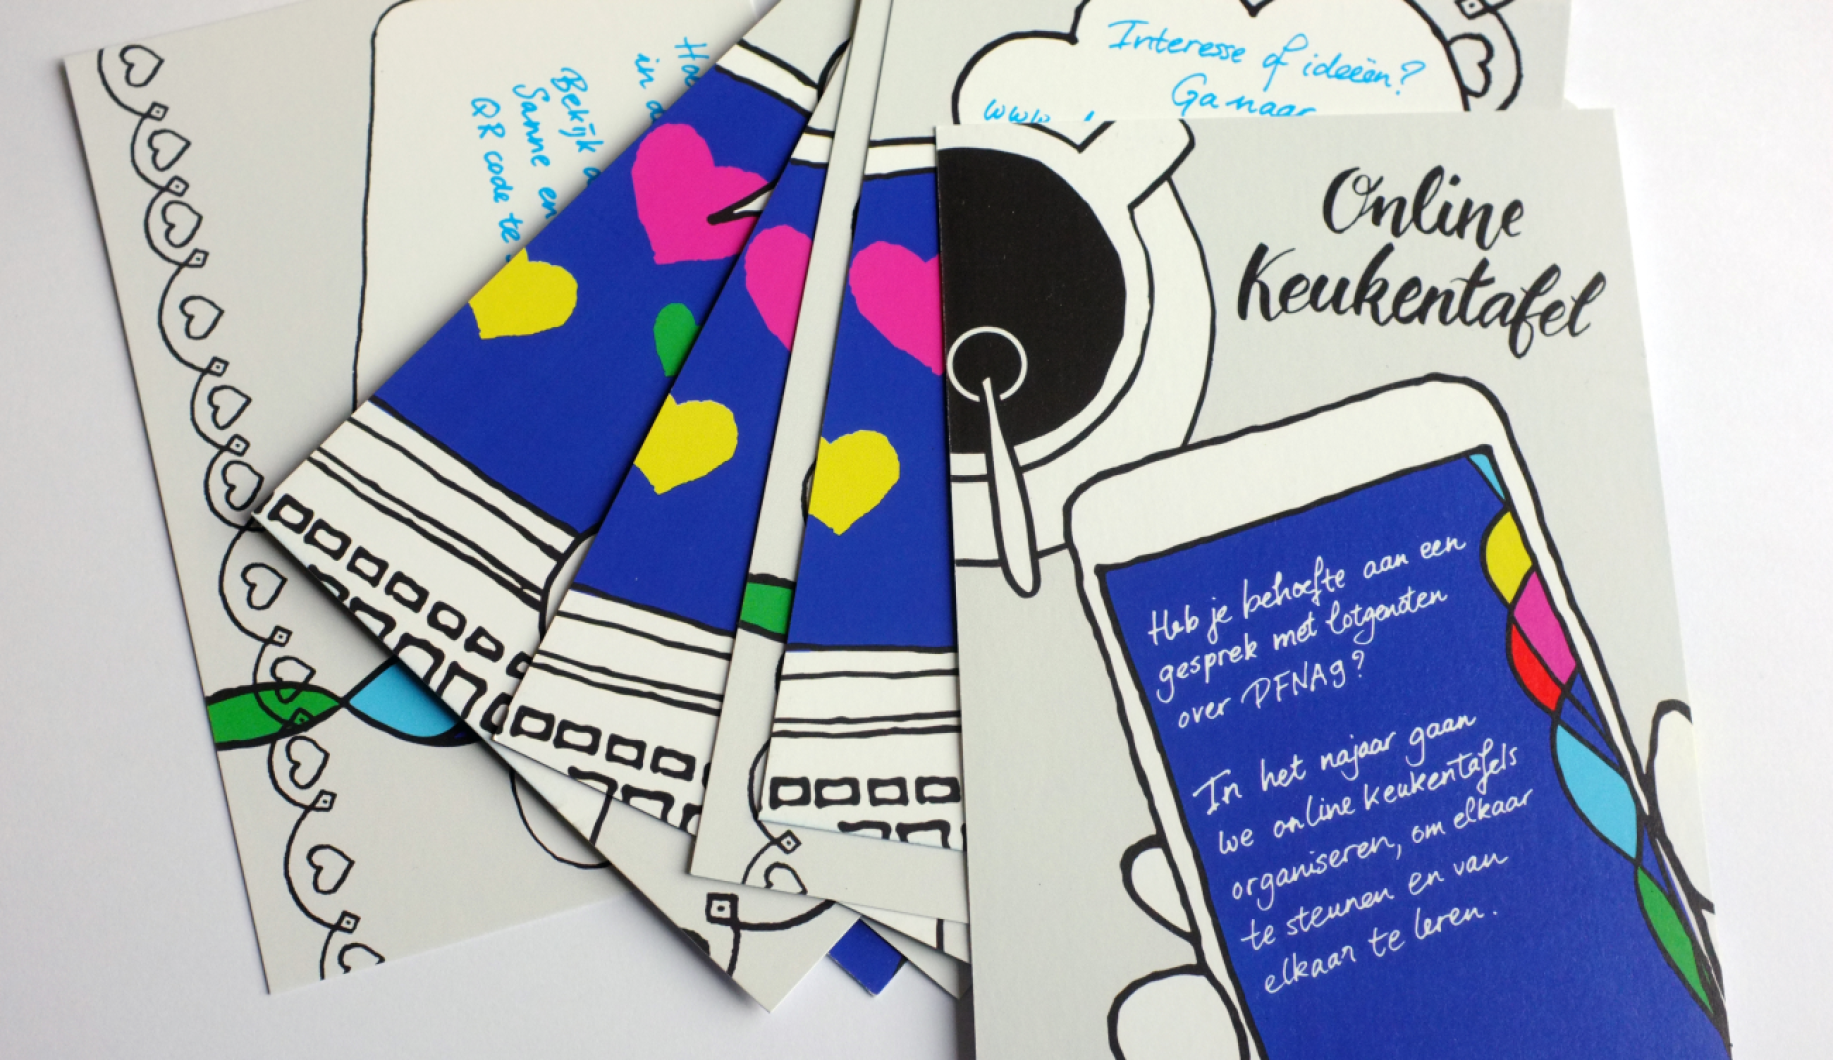 Bekijk
Sanne en
QR code te
in
Interesse of ideeën?
Ga naar
www.
Online
Keukentafel
Heb je behoefte aan een
gesprek met lotgenoten
over DFNA9?
In het najaar gaan
we online keukentafels
organiseren, om elkaar
te steunen en van
elkaar te leren.